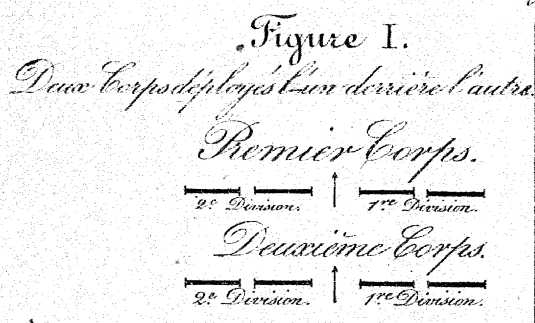 Figure I.
Deux Corps déployés l'un derrière l'autre.
Premier Corps.
2e Division. 1re Division.
Deuxième Corps.
2e Division. 1re Division.